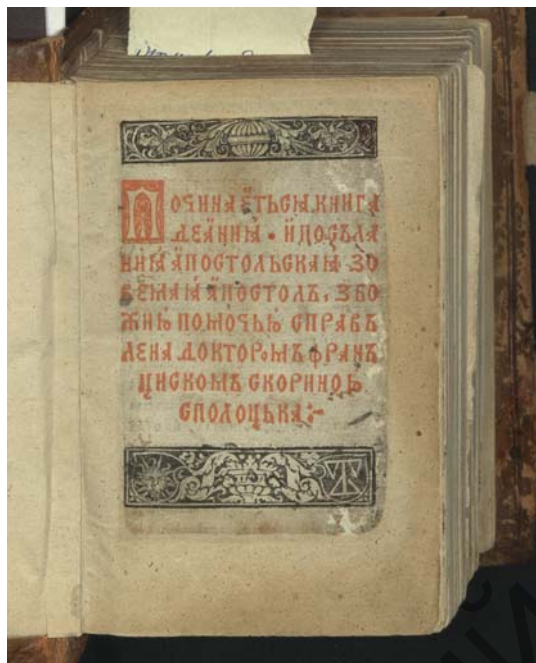 Починаеться книга
деяния · и посъла
ния апостольская зо
вемая апостолъ, з бо
жию помочью справъ
лена доктором францъ
циском скориною
с полоцька :~